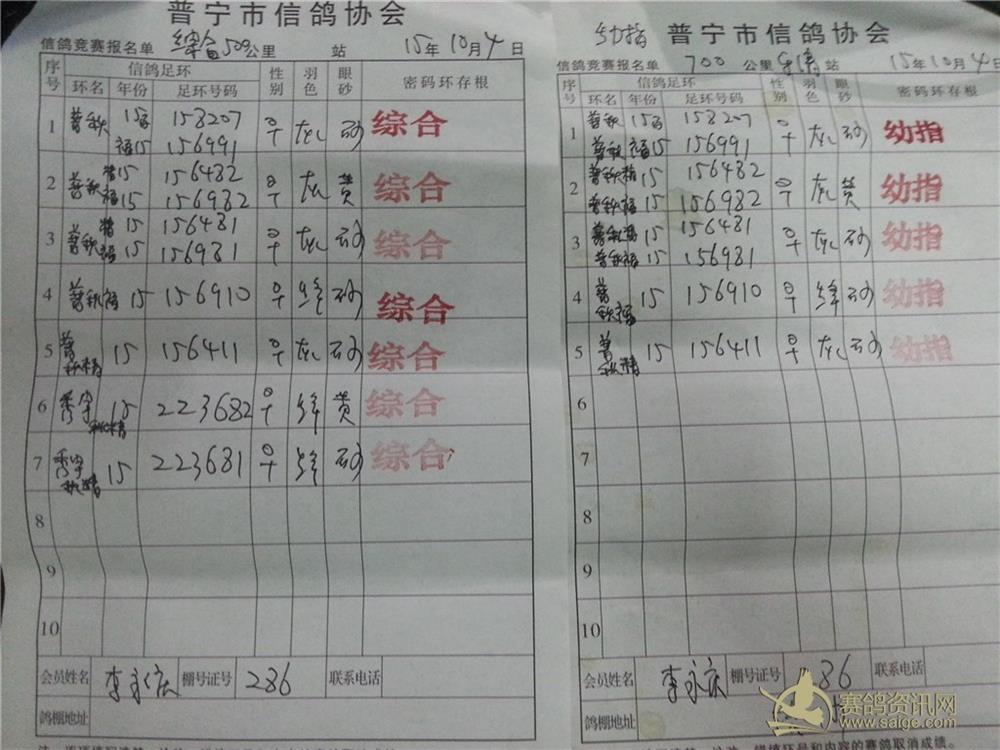 普宁市信鸽协会
信鸽竞赛报名单 综合 500公里 站 15年10月4日
序号 信鸽足环 性别 羽色 眼砂 密码环存根
环名 年份 足环号码
1 普秋 15 153207 早 灰 砂 综合
福15 156991
2 普秋精 15 156482 早 灰 黄 综合
福15 156982
3 普秋精 15 156481 早 灰 砂 综合
普秋福 15 156981
4 普秋福 15 156910 早 绛 砂 综合
5 普秋精 15 156411 早 灰 砂 综合
6 秀宇秋精 15 223682 早 绛 黄 综合
7 秀宇秋精 15 223681 早 绛 砂 综合
8
9
10
会员姓名 李永庆 棚号证号 286 联系电话
鸽棚地址
幼指 普宁市信鸽协会
信鸽竞赛报名单 700 公里 站 15年10月4日
序号 信鸽足环 性别 羽色 眼砂 密码环存根
环名 年份 足环号码
1 普秋 15 153207 早 灰 砂 幼指
普秋福15 156991
2 普秋精 15 156482 早 灰 黄 幼指
普秋福 15 156982
3 普秋精 15 156481 早 灰 砂 幼指
普秋福 15 156981
4 普秋福 15 156910 早 绛 砂 幼指
5 普秋精 15 156411 早 灰 砂 幼指
6
7
8
9
10
会员姓名 李永庆 棚号证号 86 联系电话
鸽棚地址
赛鸽资讯网
www.saige.com